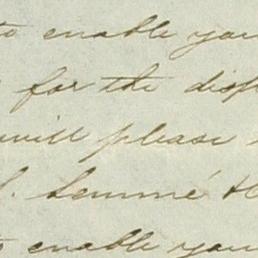 to enable you
for the disp
will please
. Semmé
to enable you